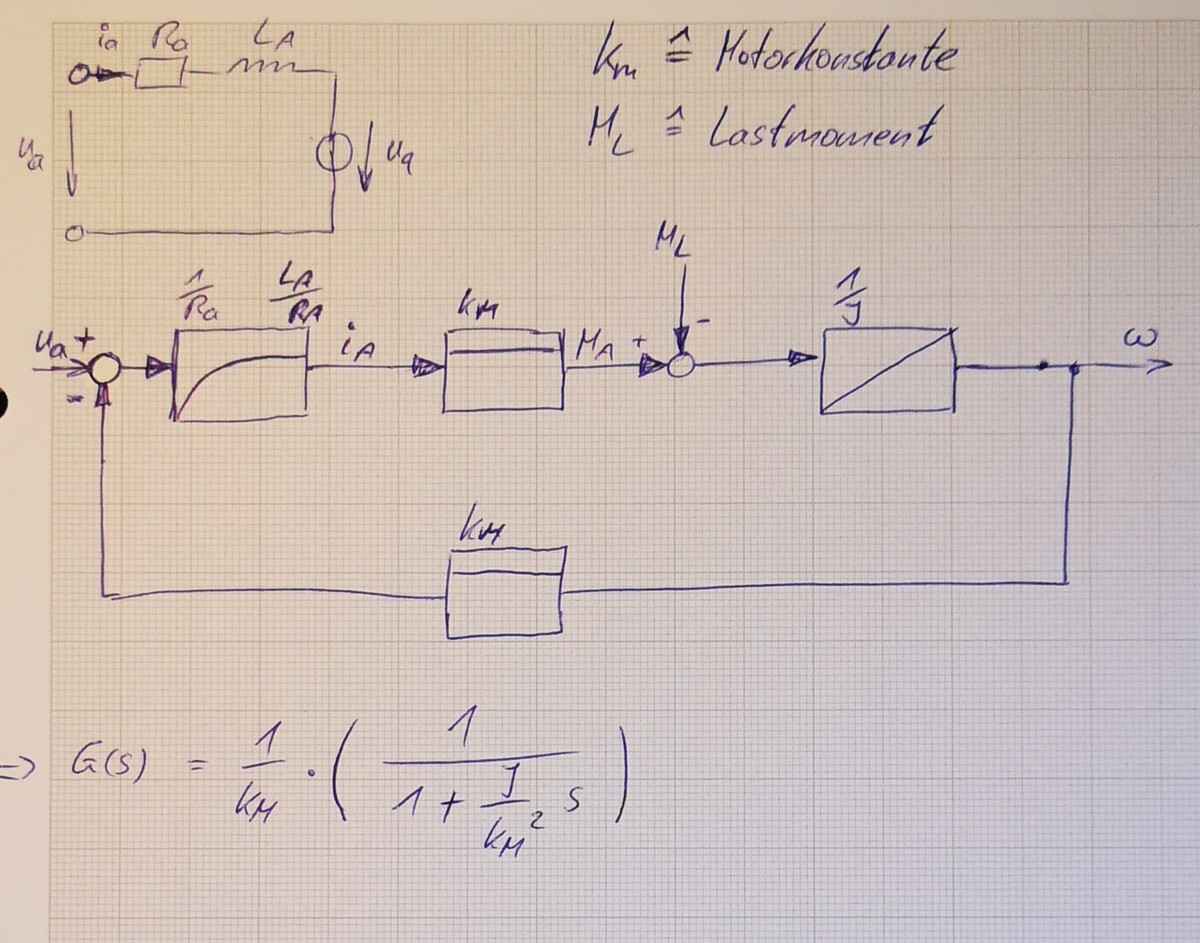 ia Ra LA
km ≙ Motorkonstante
ua uq
ML ≙ Lastmoment
ML
1/Ra LA/RA kM 1/J
ua + iA MA + - ω
-
kM
=> G(s) = 1/kM · ( 1 / (1 + J/kM² s) )